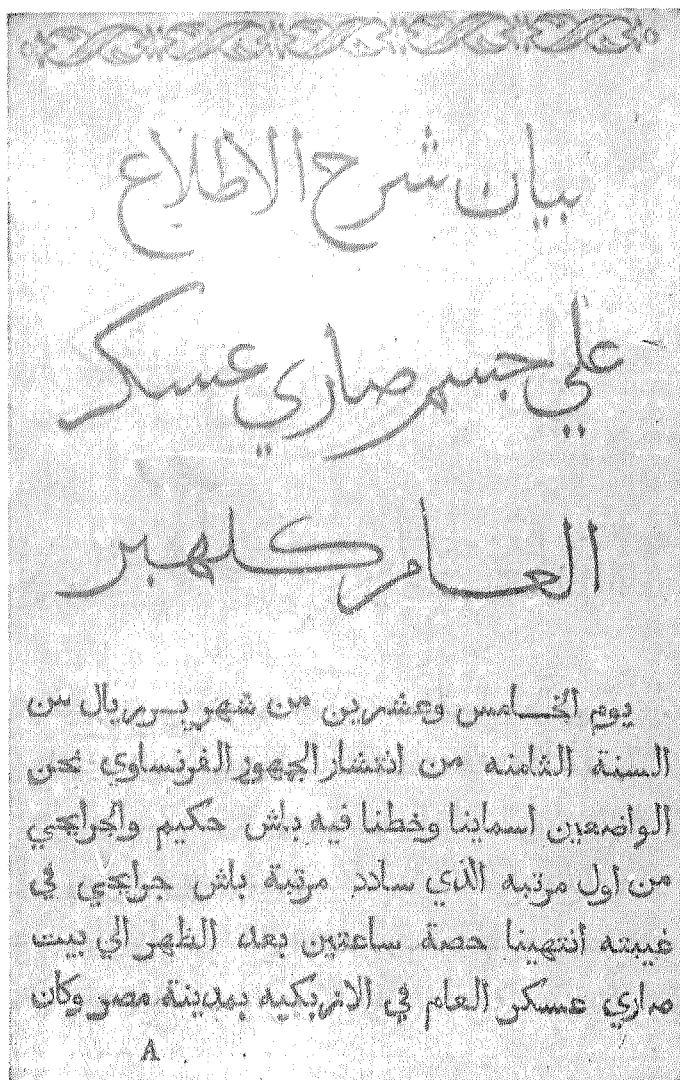 بيان شرح الاطلاع
علي جسم صاري عسكر
العام كلهبر
يوم الخامس وعشرين من شهر پريريال من
السنة الثامنه من انتشار الجمهور الفرنساوي نحن
الواضعين اسماينا وخطنا فيه باش حكيم والجرايحي
من اول مرتبه الذي سادد مرتبة باش جرايحي في
غيبته انتهينا حصة ساعتين بعد الظهر الي بيت
صاري عسكر العام في الازبكيه بمدينة مصر وكان
A